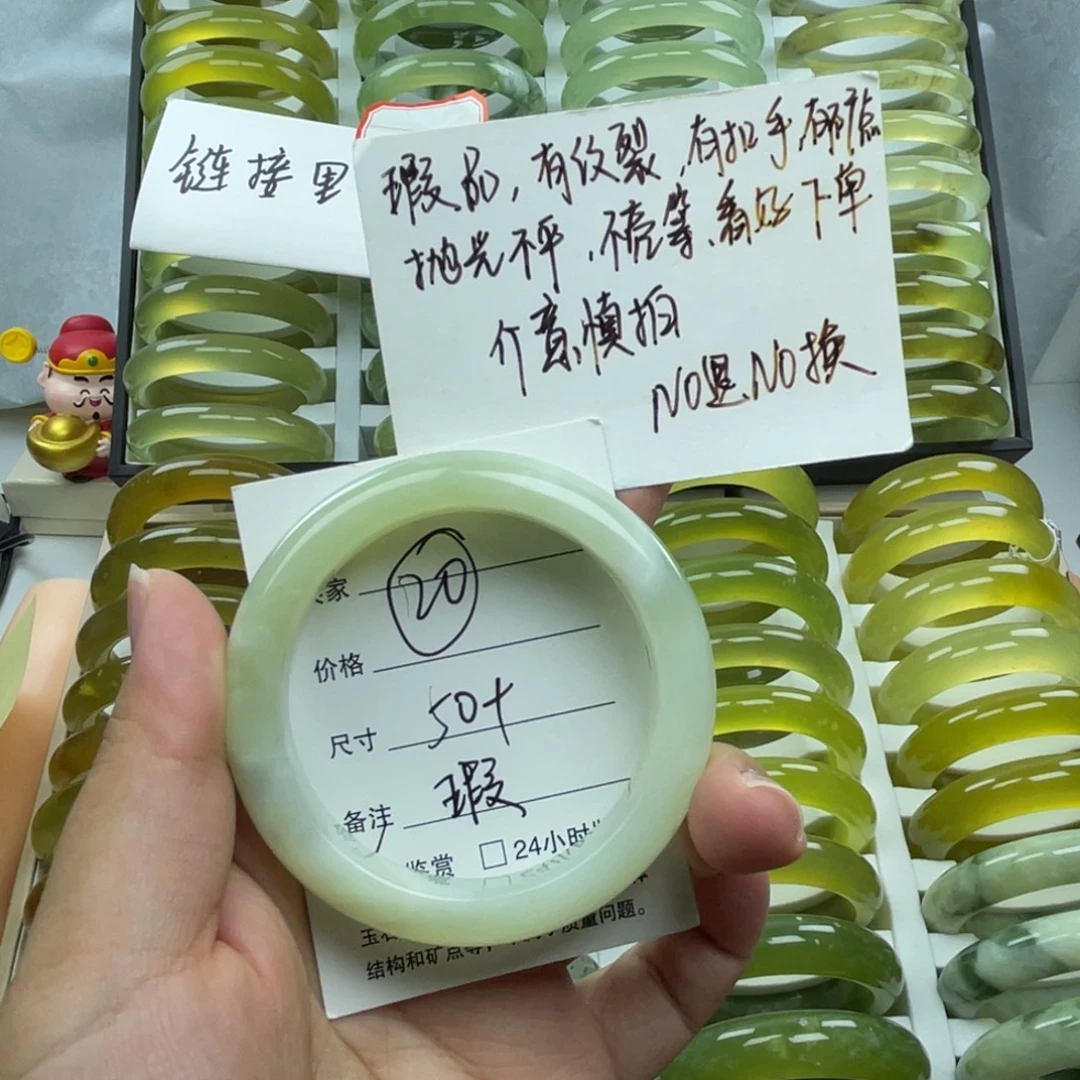 链接里
瑕品，有纹裂，有扣手，有脏点
抛光不平，不亮等、看好下单
介意慎拍
NO退、NO换
家 20
价格
尺寸 50+
备注 瑕
鉴赏 □ 24小时
质量问题。
结构和矿点等，